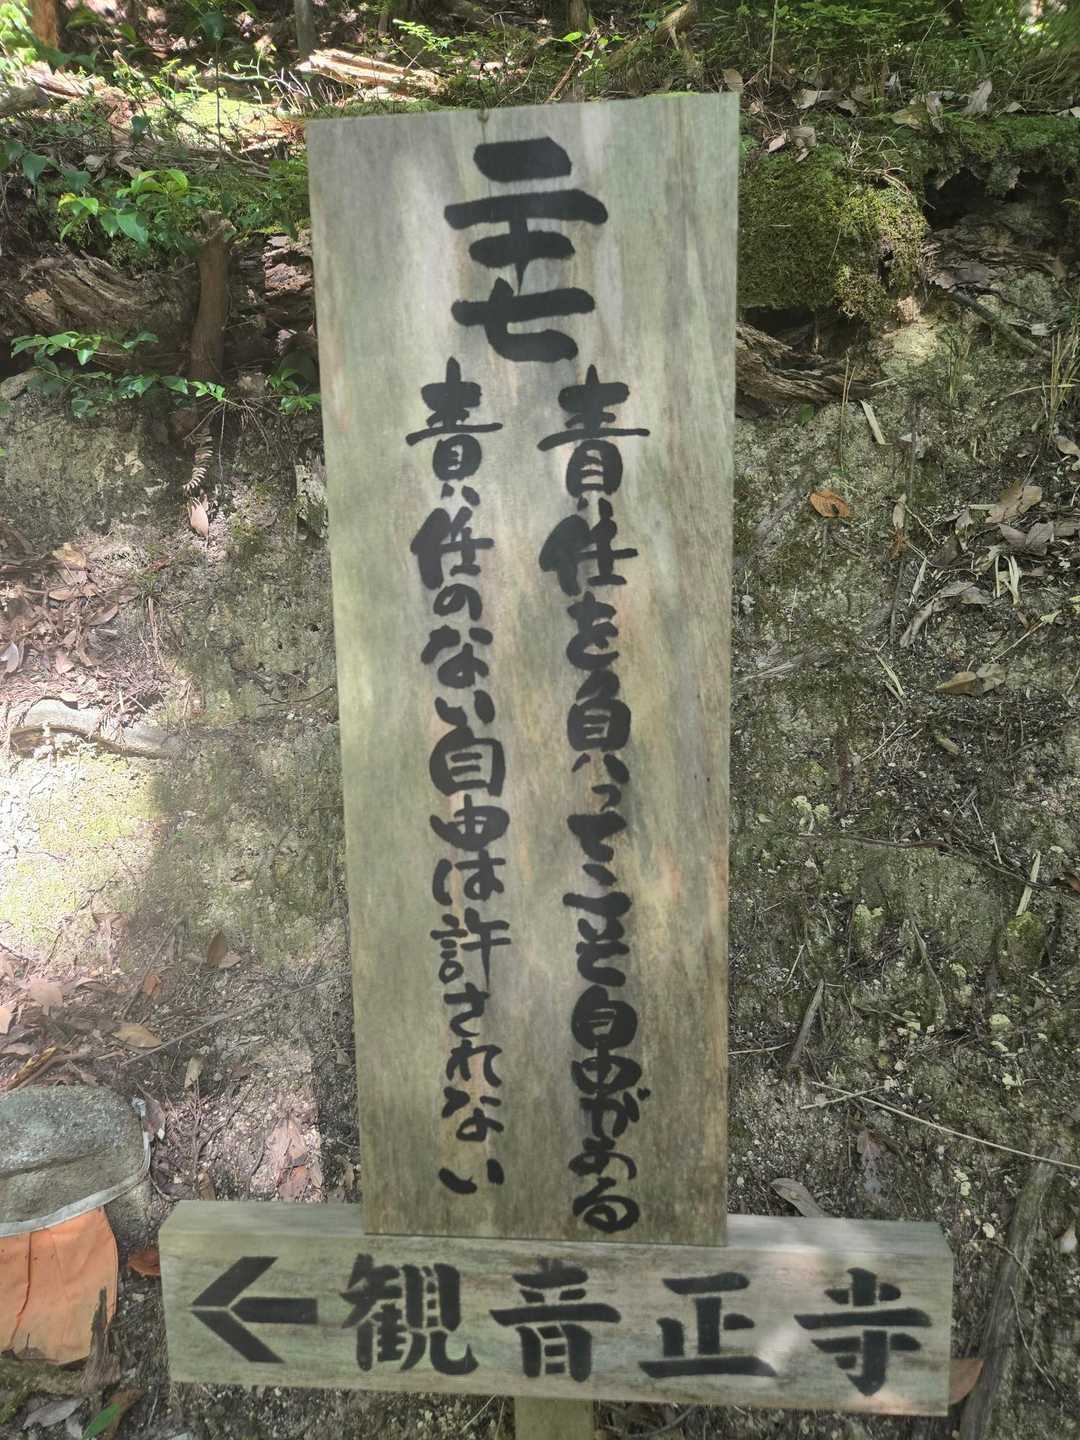 二十七
責任を負ってこそ自由がある
責任のない自由は許されない
←観音正寺